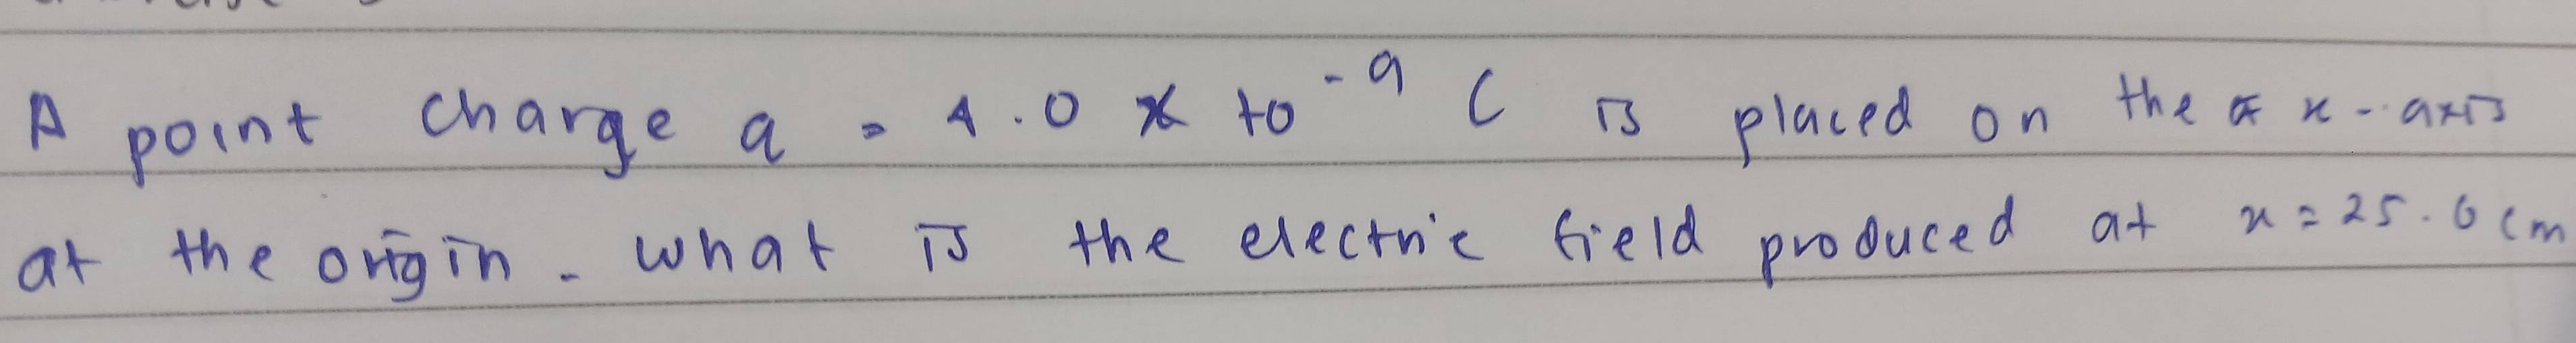 A point charge q = 4.0 x 10⁻⁹ C is placed on the x-axis
at the origin. what is the electric field produced at x = 25.0 cm